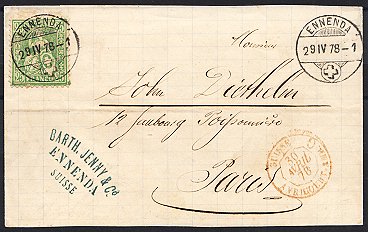 ENNENDA
29 IV 78-1
ENNENDA
29 IV 78-1
Monsieur
John Diethelm
12 faubourg Poissonnière
Paris
BARTH. JENNY & Cº
ENNENDA
SUISSE
SUISSE
30
AVRIL
78